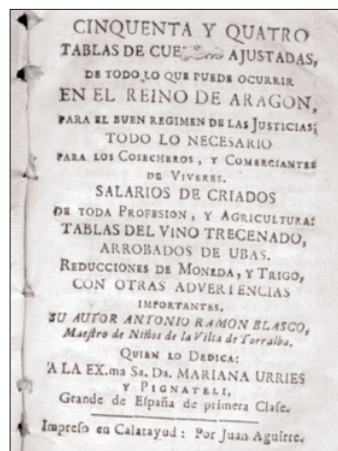 CINQUENTA Y QUATRO
TABLAS DE AJUSTADAS,
DE TODO LO QUE PUEDE OCURRIR
EN EL REINO DE ARAGON,
PARA EL BUEN REGIMEN DE LAS JUSTICIAS;
TODO LO NECESARIO
PARA LOS COSECHEROS, Y COMERCIANTES
DE VIVERES.
SALARIOS DE CRIADOS
DE TODA PROFESION, Y AGRICULTURA:
TABLAS DEL VINO TRECENADO,
ARROBADOS DE UBAS.
REDUCCIONES DE MONEDA, Y TRIGO,
CON OTRAS ADVERTENCIAS
IMPORTANTES.
SU AUTOR ANTONIO RAMON BLASCO,
Maestro de Niños de la Villa de Torralba.
QUIEN LO DEDICA:
A LA EX.ma Sa. Da. MARIANA URRIES
Y PIGNATELI,
Grande de España de primera Clase.
Impreso en Calatayud: Por Juan Aguirre.